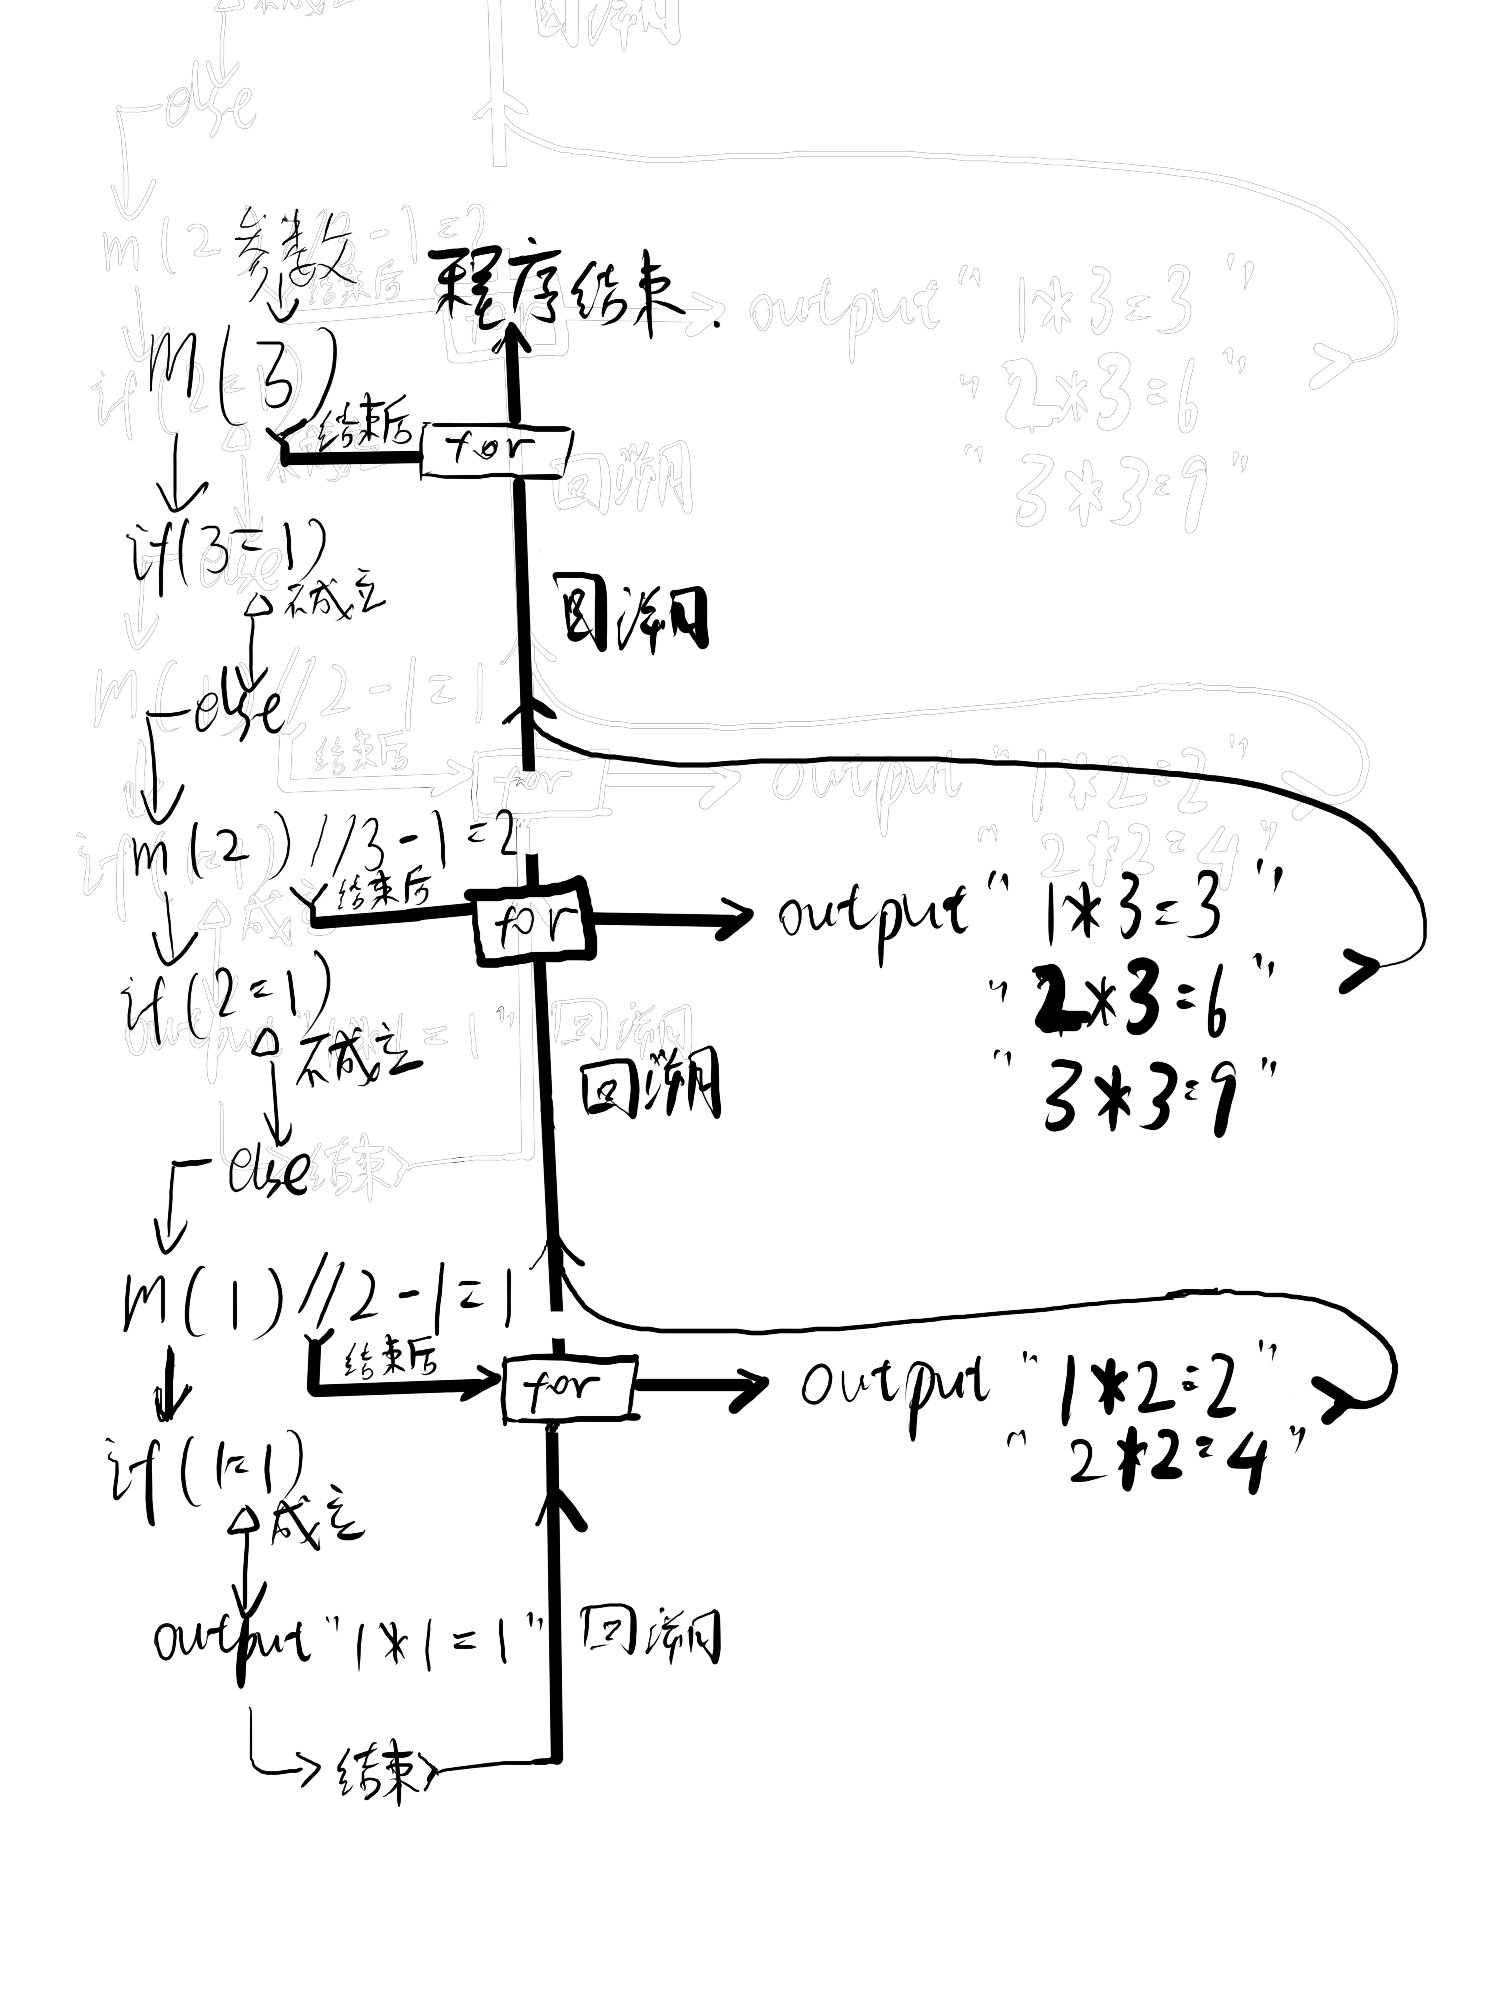 参数
程序结束.
m(3)
结束后
for
if(3=1)
不成立
回溯
else
m(2) //3-1=2
结束后
for
output " 1*3=3 "
" 2*3=6 "
" 3*3=9 "
if(2=1)
不成立
回溯
else
m(1) //2-1=1
结束后
for
output "1*2=2"
" 2*2=4 "
if(1=1)
成立
output "1*1=1"
回溯
结束